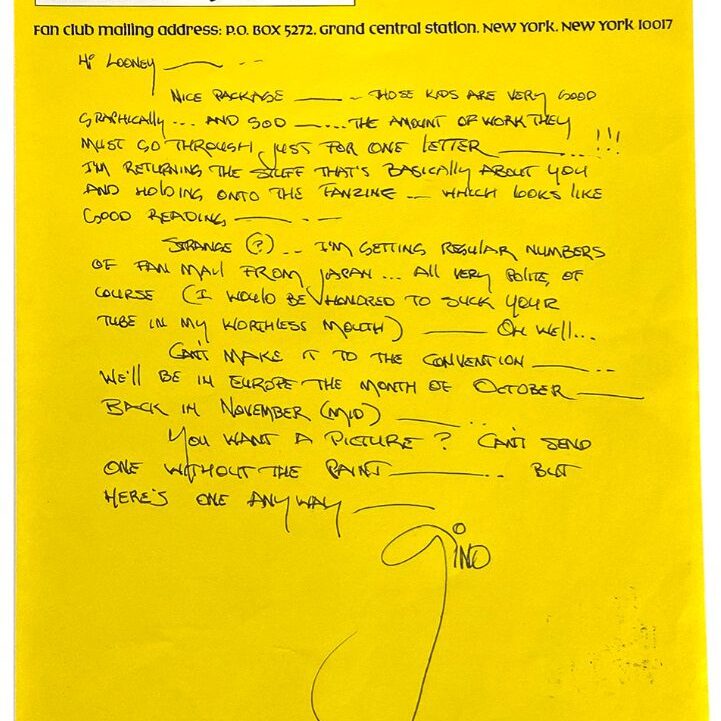 Fan club mailing address: P.O. BOX 5272. Grand central station. New York. New York 10017
Hi LOONEY —— - -
NICE PACKAGE —— .. THOSE KIDS ARE VERY GOOD
GRAPHICALLY ... AND GOD ——.... THE AMOUNT OF WORK THEY
MUST GO THROUGH JUST FOR ONE LETTER ——... !!!
I'M RETURNING THE STUFF THAT'S BASICALLY ABOUT YOU
AND HOLDING ONTO THE FANZINE -- WHICH LOOKS LIKE
GOOD READING —— - --
STRANGE (?) .. I'M GETTING REGULAR NUMBERS
OF FAN MAIL FROM JAPAN ... ALL VERY POLITE, OF
COURSE (I WOULD BE HONORED TO SUCK YOUR
TUBE IN MY WORTHLESS MOUTH) —— OH WELL...
CAN'T MAKE IT TO THE CONVENTION ——..
WE'LL BE IN EUROPE THE MONTH OF OCTOBER ——
BACK IN NOVEMBER (MID) —— ..
YOU WANT A PICTURE? CAN'T SEND
ONE WITHOUT THE PAINT ——.. BUT
HERE'S ONE ANYWAY ——
GINO